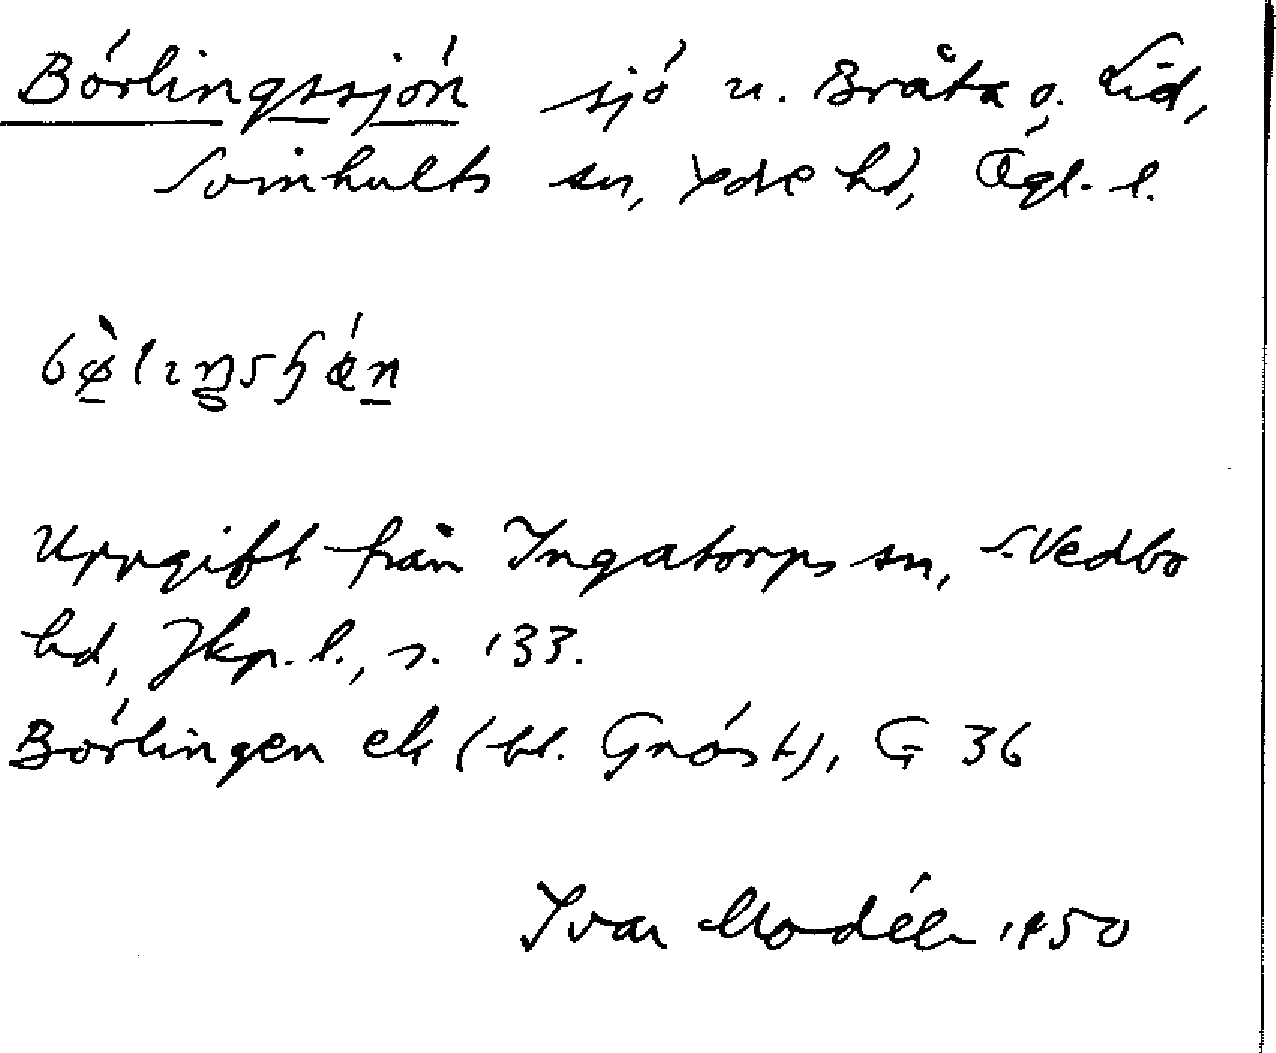 Börlingssjön sjö u. Bråta o. Lid,
Svinhults sn, Ydre hd, Ögl. l.
Uppgift från Ingatorps sn, S. Vedbo
hd, Jkp. l., s. 133.
Börlingen ek (bl. Gnöst), G 36
Ivar Modéer 1950